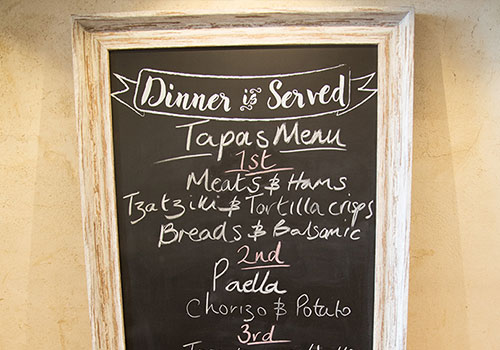 Dinner is Served
Tapas Menu
1st
Meats & Hams
Tzatziki & Tortilla crisps
Breads & Balsamic
2nd
Paella
Chorizo & Potato
3rd